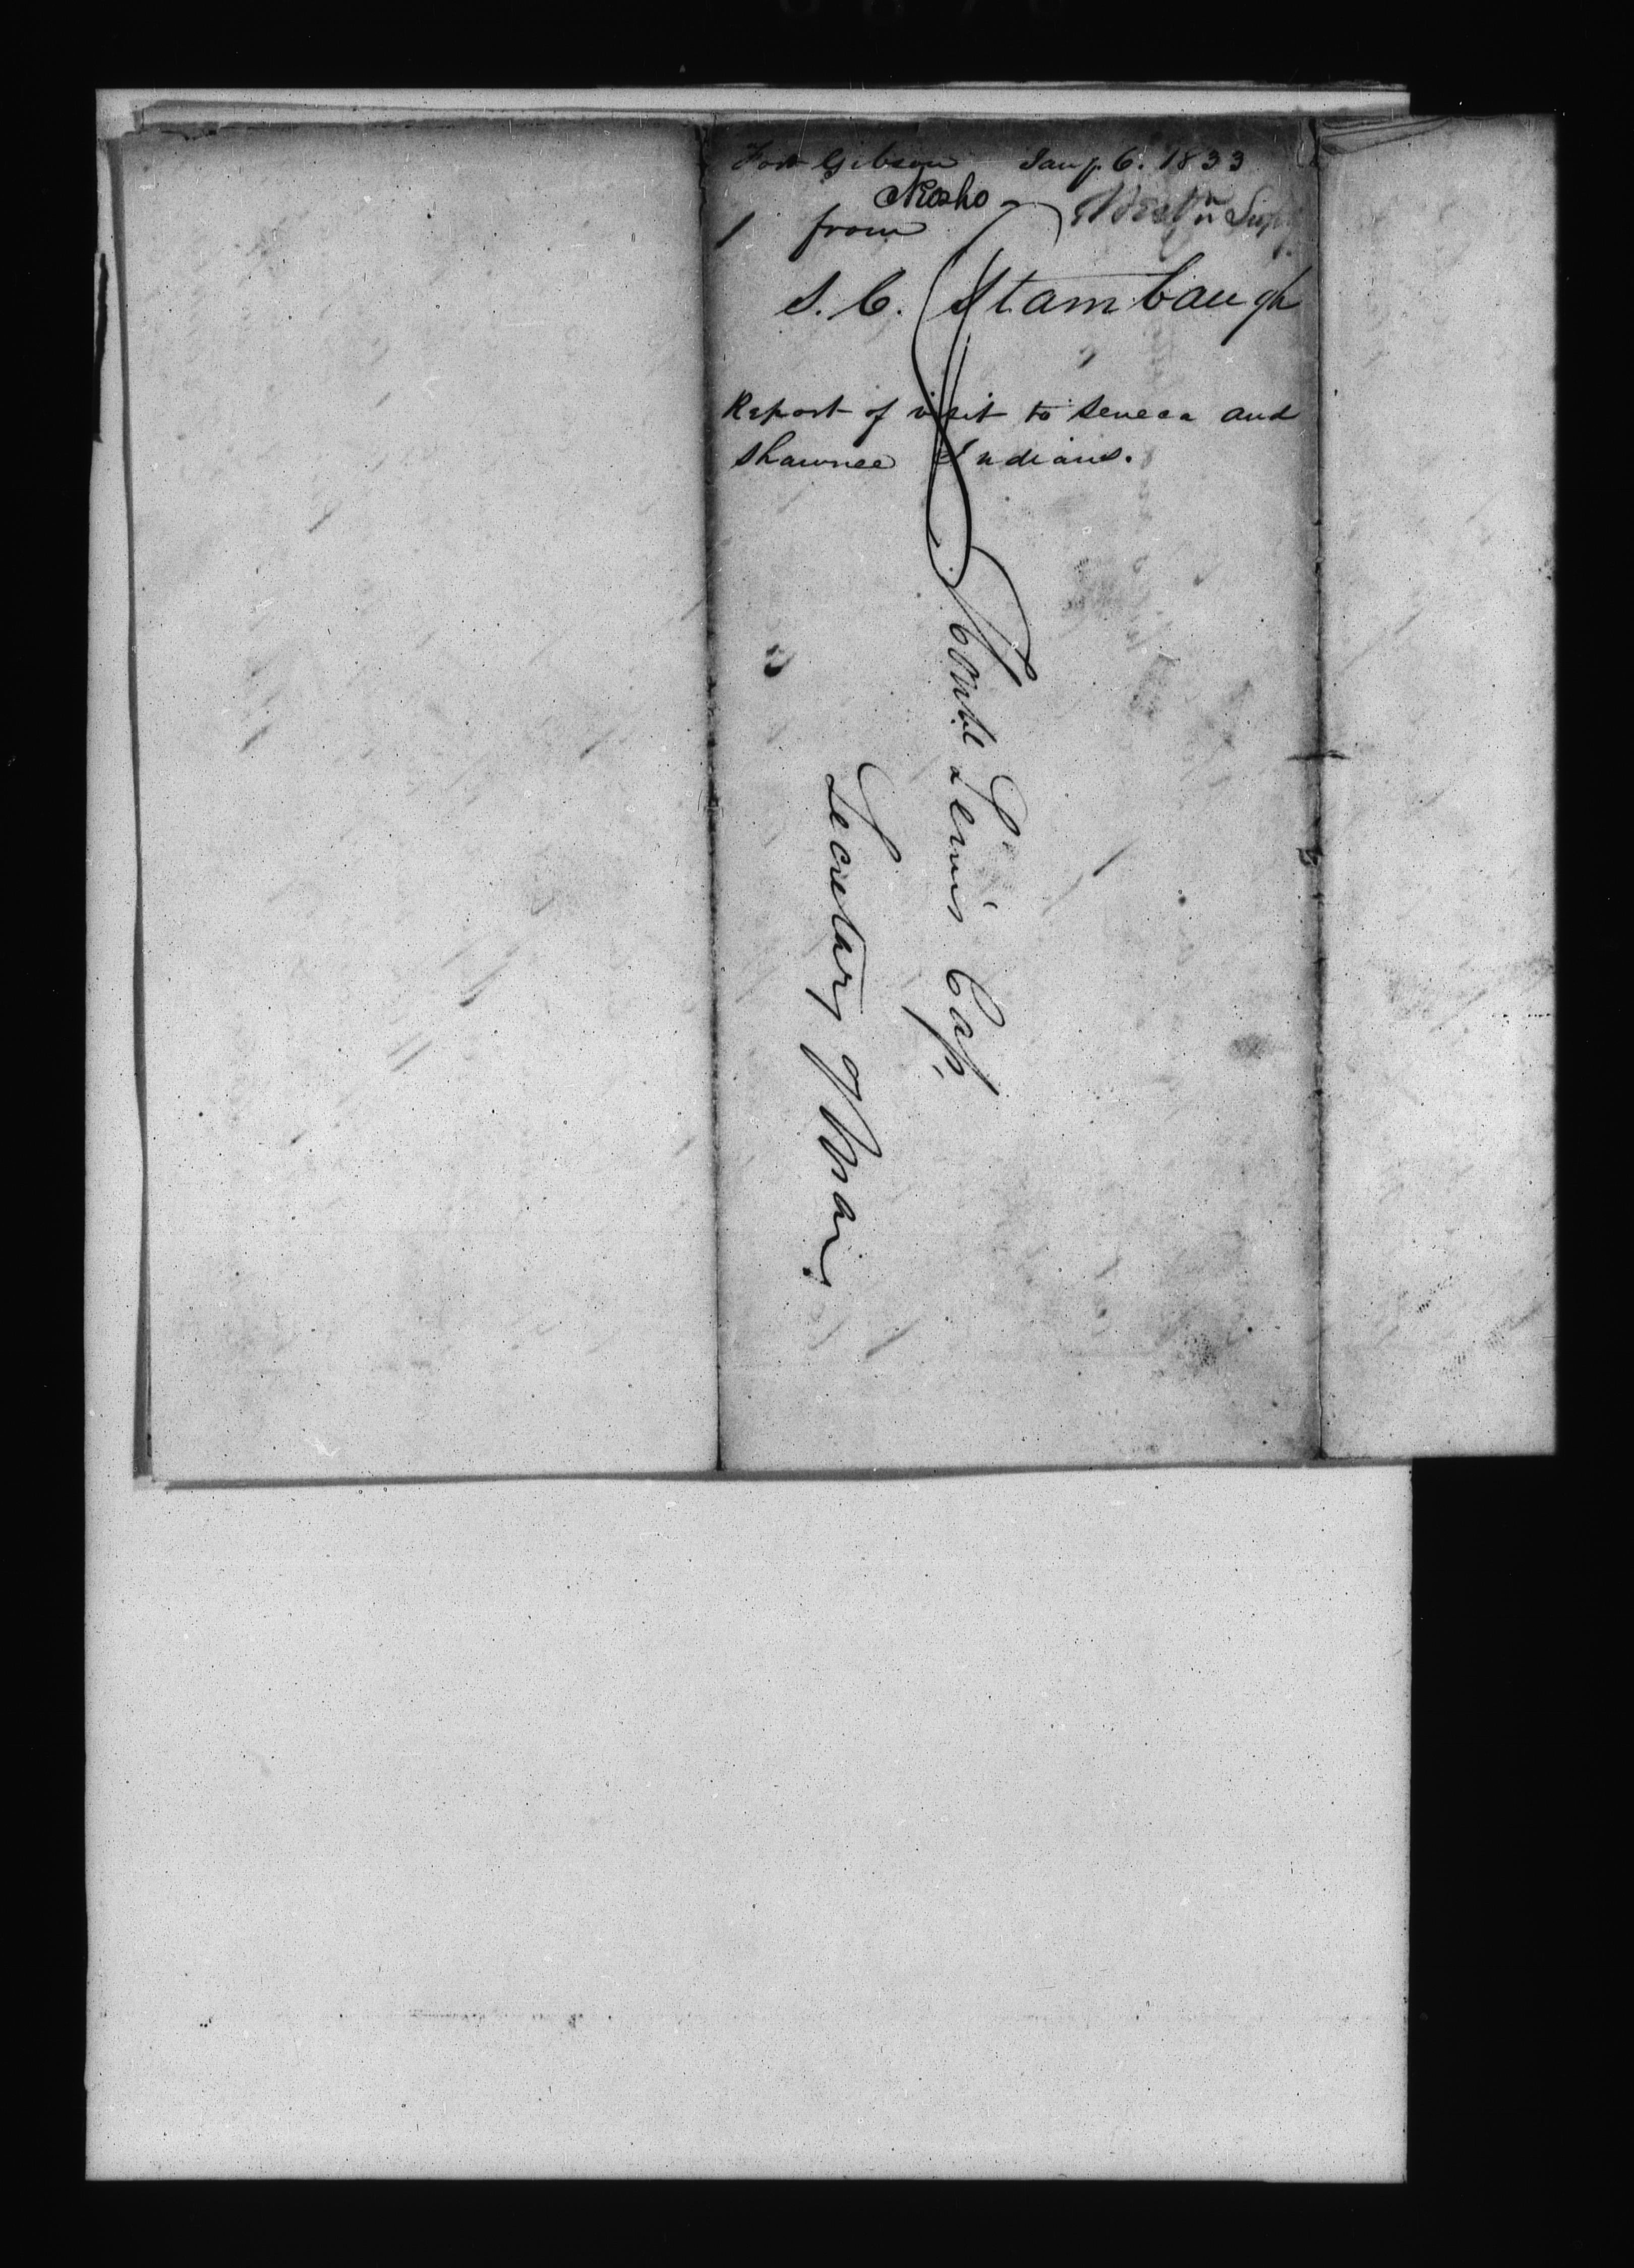 Fort Gibson Jany. 6. 1833
Neosho
Westn Supy.
1 from
S. C. Stambaugh
Report of visit to Seneca and
Shawnee Indians.
Honble Lewis Cass,
Secretary of War.